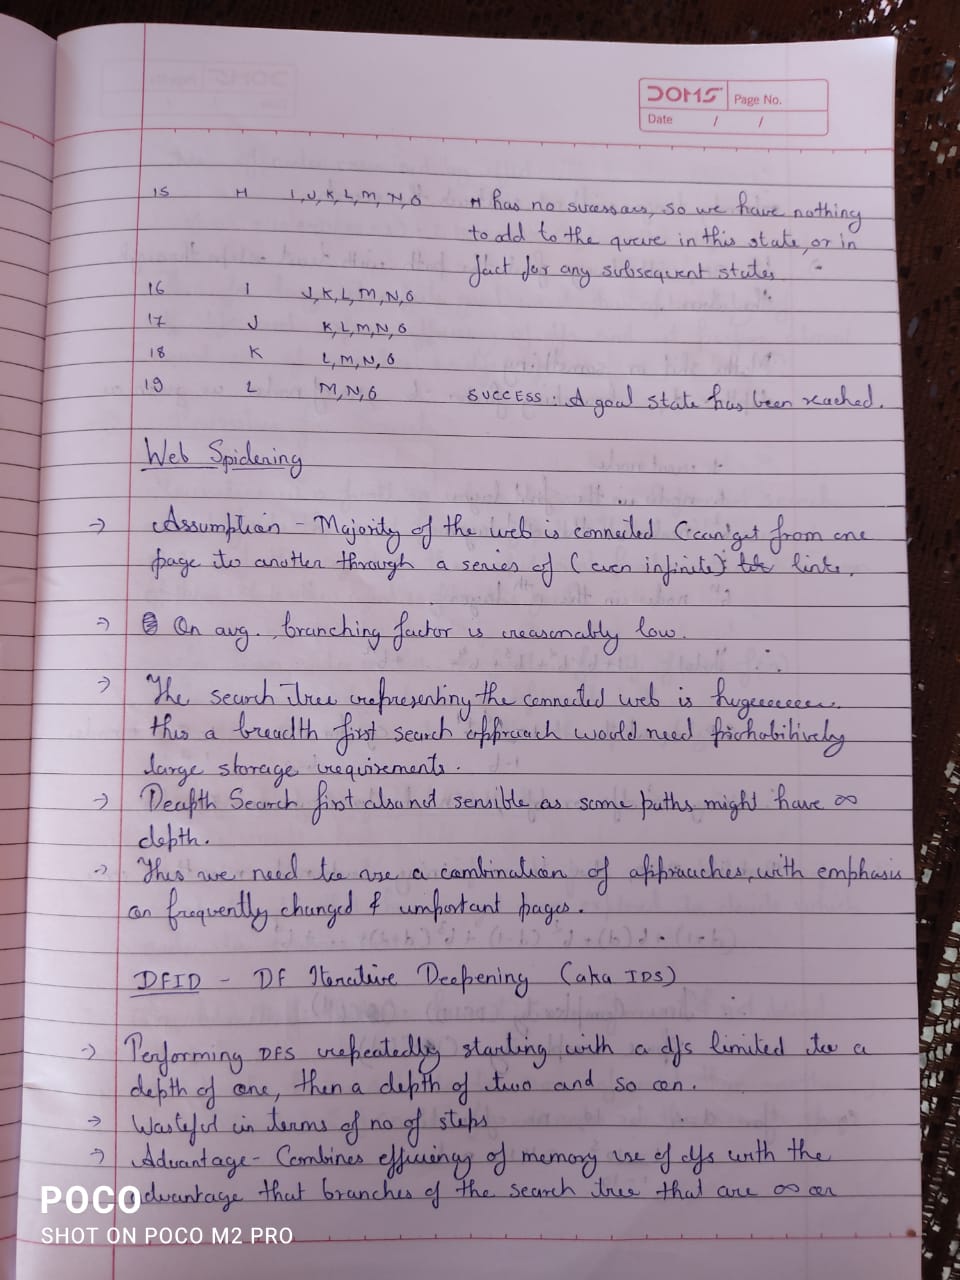 DOMS Page No.
Date / /
15 H I,J,K,L,M,N,O H has no sucessars, so we have nothing
to add to the queue in this state, or in
fact for any subsequent states
16 I J,K,L,M,N,O
17 J K,L,M,N,O
18 K L,M,N,O
19 L M,N,O SUCCESS: A goal state has been reached.
Web Spidering
→ Assumption - Majority of the web is connected (can get from one
page to another through a series of (even infinite) links.
→ On avg., branching factor is reasonably low.
→ The search tree representing the connected web is hugeeeeeeee.
thus a breadth first search approach would need prohobitively
large storage requirements.
→ Deapth Search first also not sensible as some paths might have ∞
depth.
→ Thus we need to use a combination of approaches, with emphasis
on frequently changed & important pages.
DFID - DF Iterative Deepening (aka IDS)
→ Performing DFS repeatedly starting with a dfs limited to a
depth of one, then a depth of two and so on.
→ Wasteful in terms of no of steps
→ Advantage - Combines efficiency of memory use of dfs with the
advantage that branches of the search tree that are ∞ or
POCO
SHOT ON POCO M2 PRO